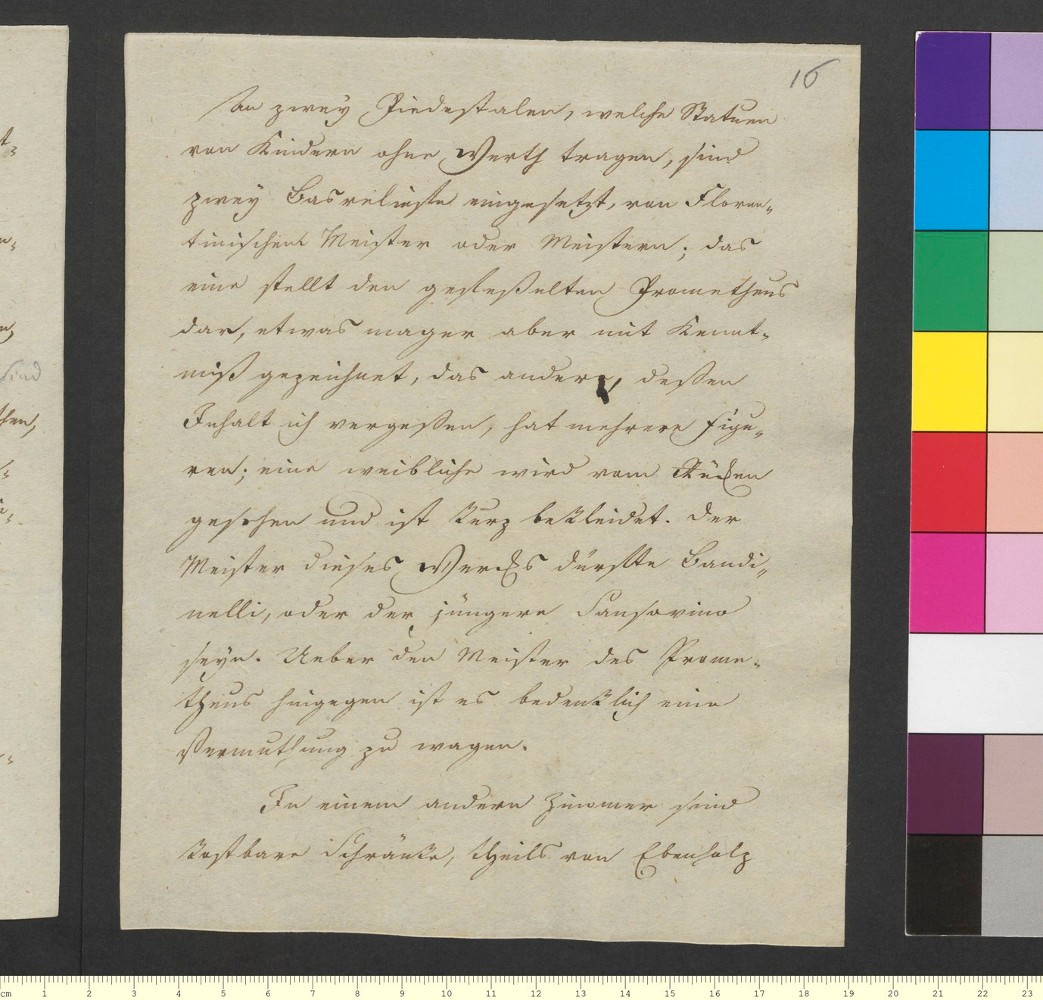 16
An zwey Piedestalen, welche Statuen
von Kindern ohne Werth tragen, sind
zwey Basreliefe eingesetzt, von Floren-
tinischem Meister oder Meistern; das
eine stellt den gefeßelten Prometheus
dar, etwas mager aber mit Kennt-
niß gezeichnet, das andere, deßen
Inhalt ich vergeßen, hat mehrere Figu-
ren; eine weibliche wird vom Rücken
gesehen und ist kurz bekleidet. Der
Meister dieses Wercks dürfte Bandi-
nelli, oder der jüngere Sansovino
seyn. Ueber den Meister des Prome-
theus hingegen ist es bedenklich eine
Vermuthung zu wagen.
In einem andern Zimmer sind
kostbare Schränke, theils von Ebenholz